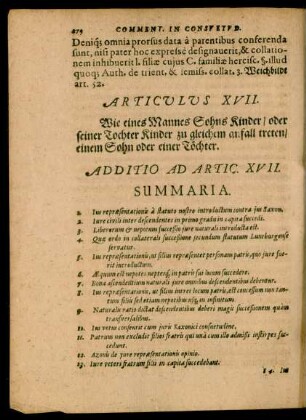 COMMENT. IN CONSVETVD.
Deniq; omnia prorsus data à parentibus conferenda
sunt, nisi pater hoc expresse designauerit, & collatio-
nem inhibuerit l. filiæ cujus C. familiæ hercisc. §. illud
quoq; Auth. de trient. & semiss. collat. 3. Weichbildt
art. 52.
ARTICULUS XVII.
Wie eines Mannes Sohns Kinder / oder
seiner Tochter Kinder zu gleichem anfall treten /
einem Sohn oder einer Töchter.
ADDITIO AD ARTIC. XVII.
SUMMARIA.
1. Ius repræsentationis à statuto nostro introductum contra jus Saxon.
2. Iure civili inter descendentes in primo gradu in capita succedi.
3. Liberorum & nepotum successio jure naturali introducta est.
4. Quo ordo in collaterali successione secundum statutum Lunæburgense
servatur.
5. Ius repræsentationis, ut filius repræsentet personam patris quo jure fue-
rit introductum.
6. Æquum est nepotes neptesq; in patris sui locum succedere.
7. Bona ascendentium naturali jure omnibus descendentibus debentur.
8. Ius repræsentationis, ut filius intret locum patris, est concessum non tan-
tum filiis sed etiam nepotibus etc. in infinitum.
9. Naturalis ratio dictat descendentibus deberi magis successionem quàm
transversalibus.
10. Ius vetus consentit cum juris Saxonici consuetudine.
11. Patruus non excludit filios fratris qui unà cum illo admissi in stirpes suc-
cedunt.
12. Azonis de jure repræsentationis opinio.
13. Iure veteri fratrum filii in capita succedebant.